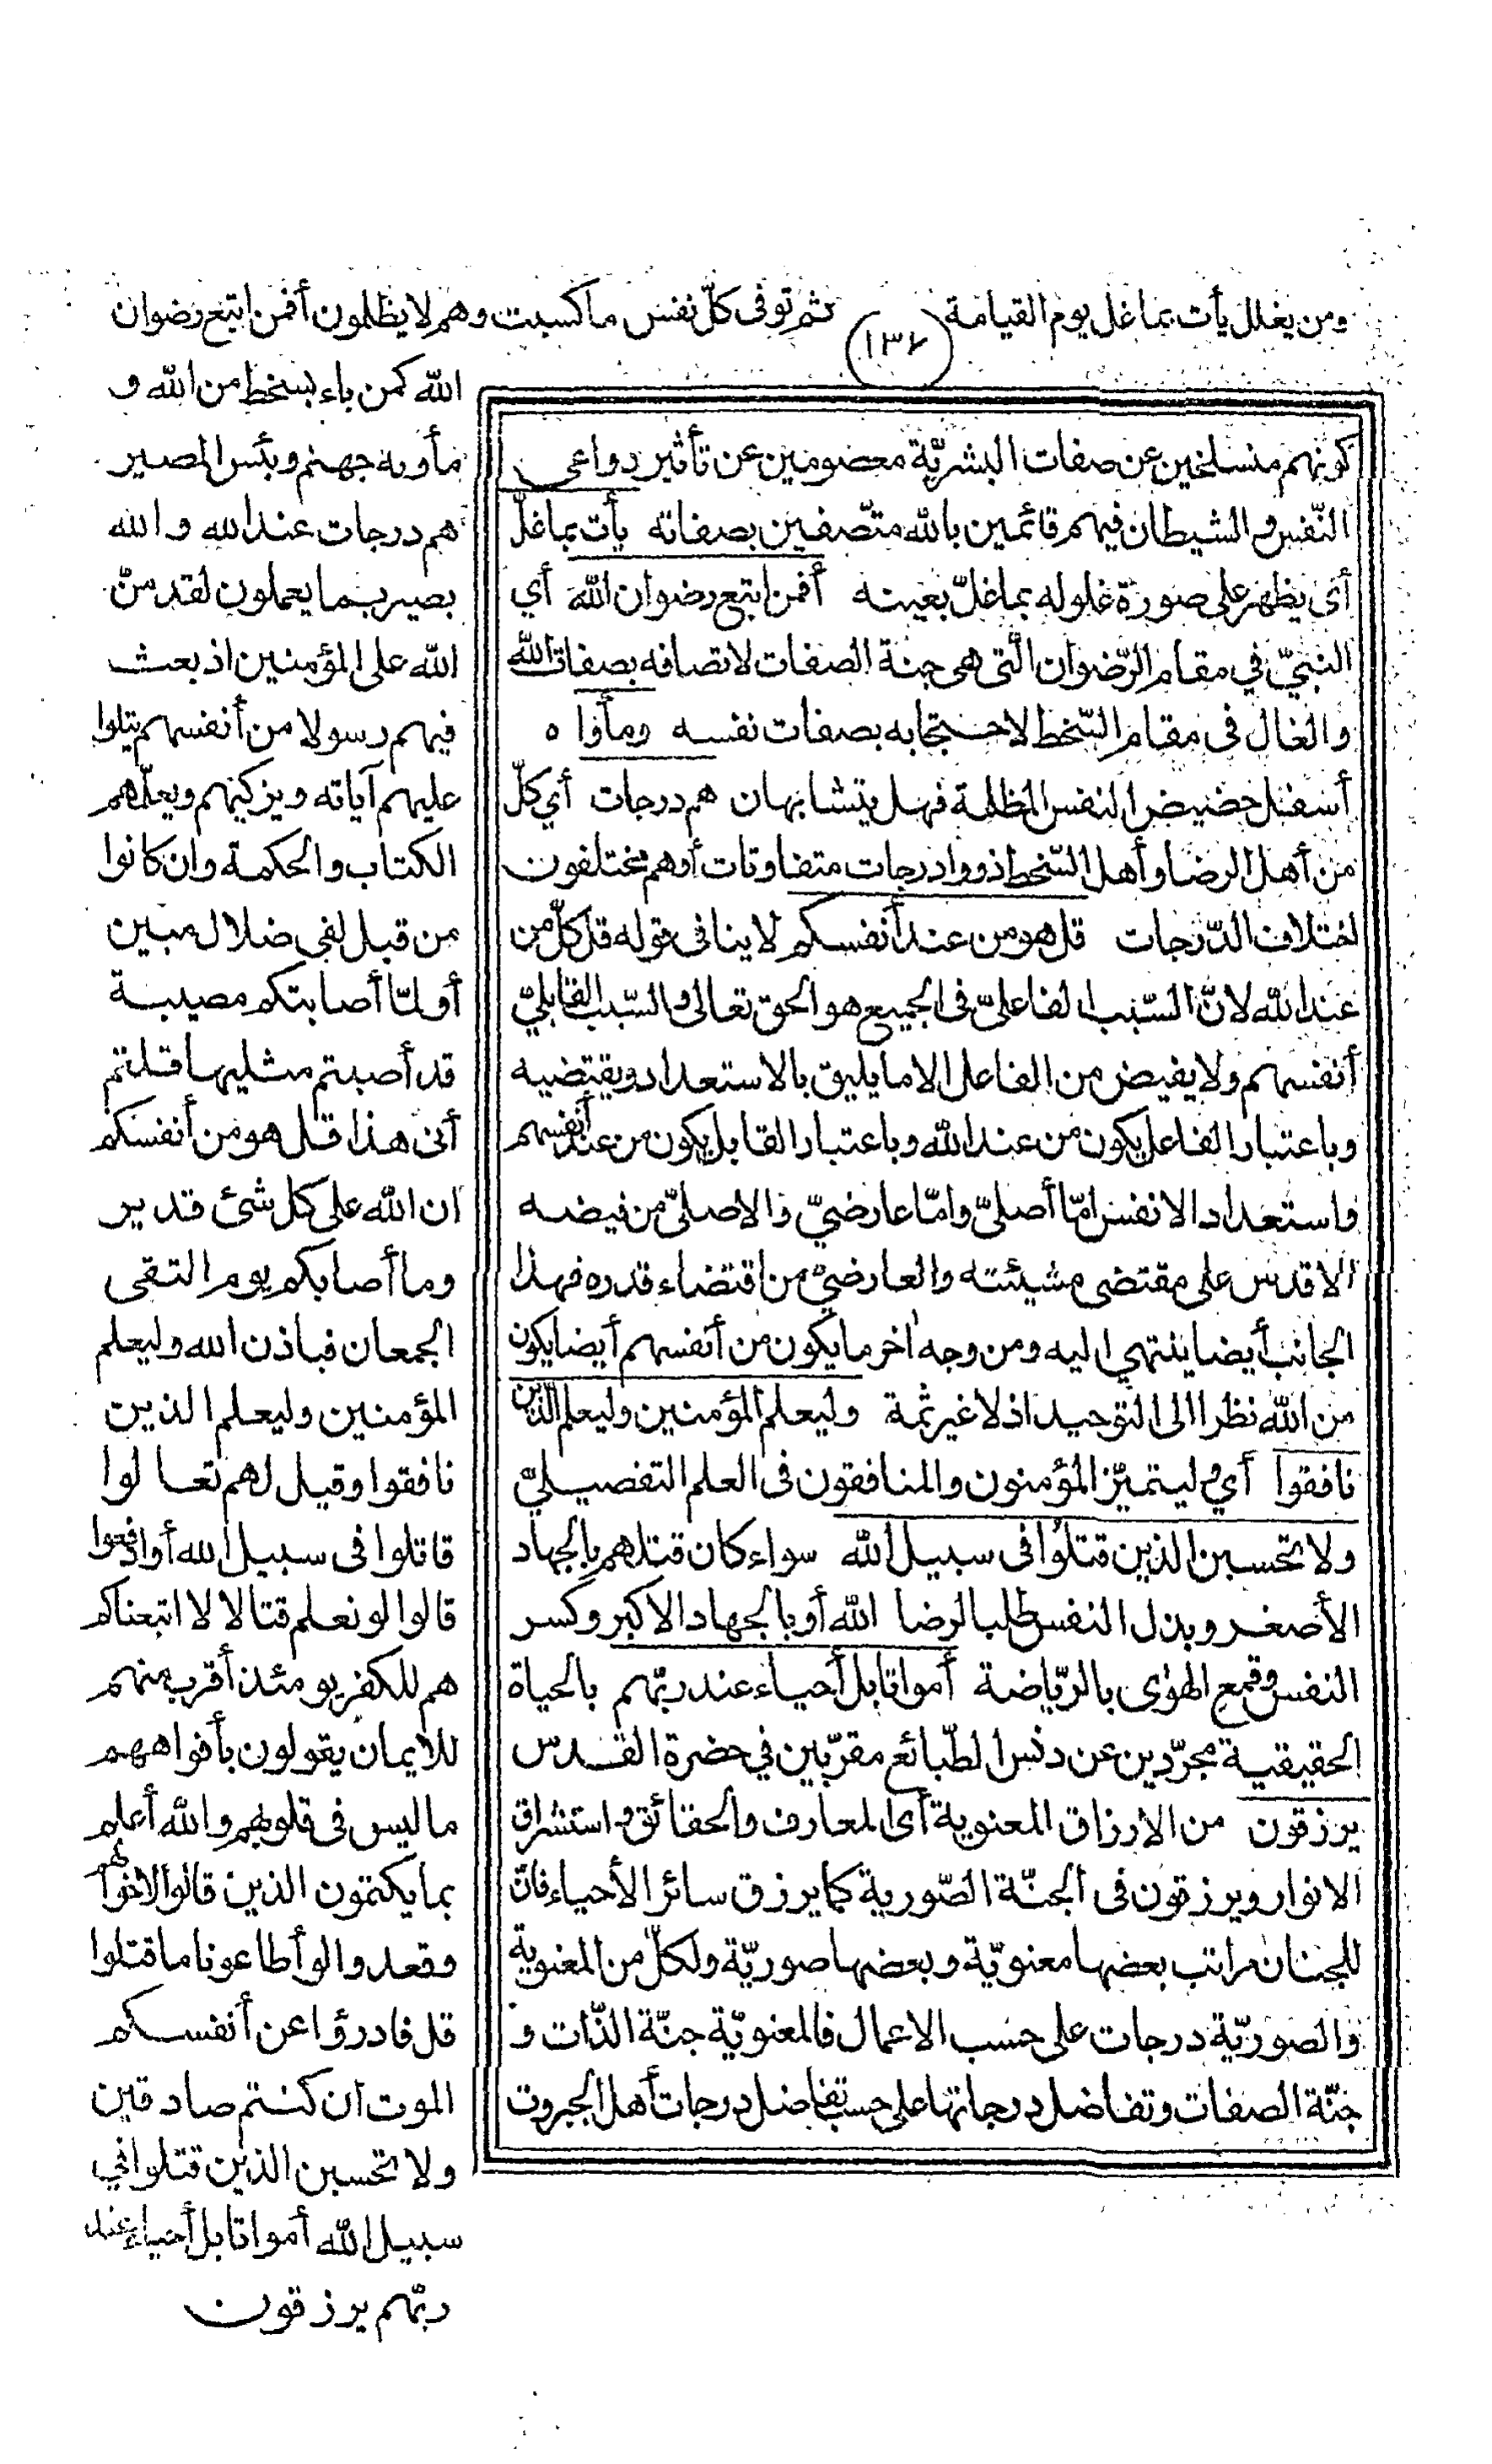 ومن يغلل يأت بما غل يوم القيامة
(١٣٦)
ثم توفى كلّ نفس ما كسبت وهم لا يظلمون أفمن اتبع رضوان
الله كمن باء بسخط من الله و
مأويه جهنم وبئس المصير
هم درجات عند الله والله
بصير بما يعملون لقد منّ
الله على المؤمنين اذ بعث
فيهم رسولا من أنفسهم يتلوا
عليهم آياته ويزكيهم ويعلّمهم
الكتاب والحكمة وان كانوا
من قبل لفى ضلال مبين
أولمّا أصابتكم مصيبة
قد أصبتم مثليها قلتم
أنى هذا قل هو من أنفسكم
ان الله على كل شئ قدير
وما أصابكم يوم التقى
الجمعان فباذن الله وليعلم
المؤمنين وليعلم الذين
نافقوا وقيل لهم تعالوا
قاتلوا فى سبيل الله أو ادفعوا
قالوا لو نعلم قتالا لا اتبعناكم
هم للكفر يومئذ أقرب منهم
للايمان يقولون بأفواههم
ما ليس فى قلوبهم والله أعلم
بما يكتمون الذين قالوا لاخوانهم
وقعدوا لو أطاعونا ما قتلوا
قل فادرؤا عن أنفسكم
الموت ان كنتم صادقين
ولا تحسبن الذين قتلوا في
سبيل الله أمواتا بل أحياء عند
ربّهم يرزقون
كونهم منسلخين عن صفات البشريّة معصومين عن تأثير دواعى
النّفس والشيطان فيهم قائمين بالله متّصفين بصفاته يأت بما غلّ
أى يظهر على صورة غلوله بما غلّ بعينه أفمن اتبع رضوان الله أي
النبيّ في مقام الرّضوان الّتى هى جنة الصفات لاتصافه بصفات الله
والغال فى مقام السّخط لاحتجابه بصفات نفسه ومأواه
أسفل حضيض النفس المظلمة فهل يتشابهان هم درجات أي كلّ
من أهل الرضا وأهل السّخط ذووا درجات متفاوتات أو هم مختلفون
اختلاف الدّرجات قل هو من عند أنفسكم لا ينافى قوله قل كلّ من
عند الله لانّ السّبب الفاعليّ فى الجميع هو الحق تعالى والسّبب القابليّ
أنفسهم ولا يفيض من الفاعل الا ما يليق بالاستعداد ويقتضيه
وباعتبار الفاعل يكون من عند الله وباعتبار القابل يكون من عند أنفسهم
واستعداد الانفس امّا أصليّ وامّا عارضيّ والاصليّ من فيضه
الاقدس على مقتضى مشيئته والعارضيّ من اقتضاء قدره فهذا
الجانب أيضا ينتهي اليه ومن وجه اخر ما يكون من أنفسهم أيضا يكون
من الله نظرا الى التوحيد اذ لا غير ثمة وليعلم المؤمنين وليعلم الذين
نافقوا أي وليتميّز المؤمنون والمنافقون فى العلم التفصيليّ
ولا تحسبن الذين قتلوا فى سبيل الله سواء كان قتلهم بالجهاد
الأصغر وبذل النفس طلبا لرضا الله أو بالجهاد الاكبر وكسر
النفس وقمع الهوى بالرّياضة أمواتا بل أحياء عند ربّهم بالحياة
الحقيقية مجرّدين عن دنس الطّبائع مقرّبين في حضرة القدس
يرزقون من الارزاق المعنوية أى المعارف والحقائق واستشراق
الانوار ويرزقون فى الجنّة الصّورية كما يرزق سائر الأحياء فانّ
للجنان مراتب بعضها معنويّة وبعضها صوريّة ولكلّ من المعنوية
والصوريّة درجات على حسب الاعمال فالمعنويّة جنّة الذّات و
جنّة الصفات وتفاضل درجاتها على حسب تفاضل درجات أهل الجبروت